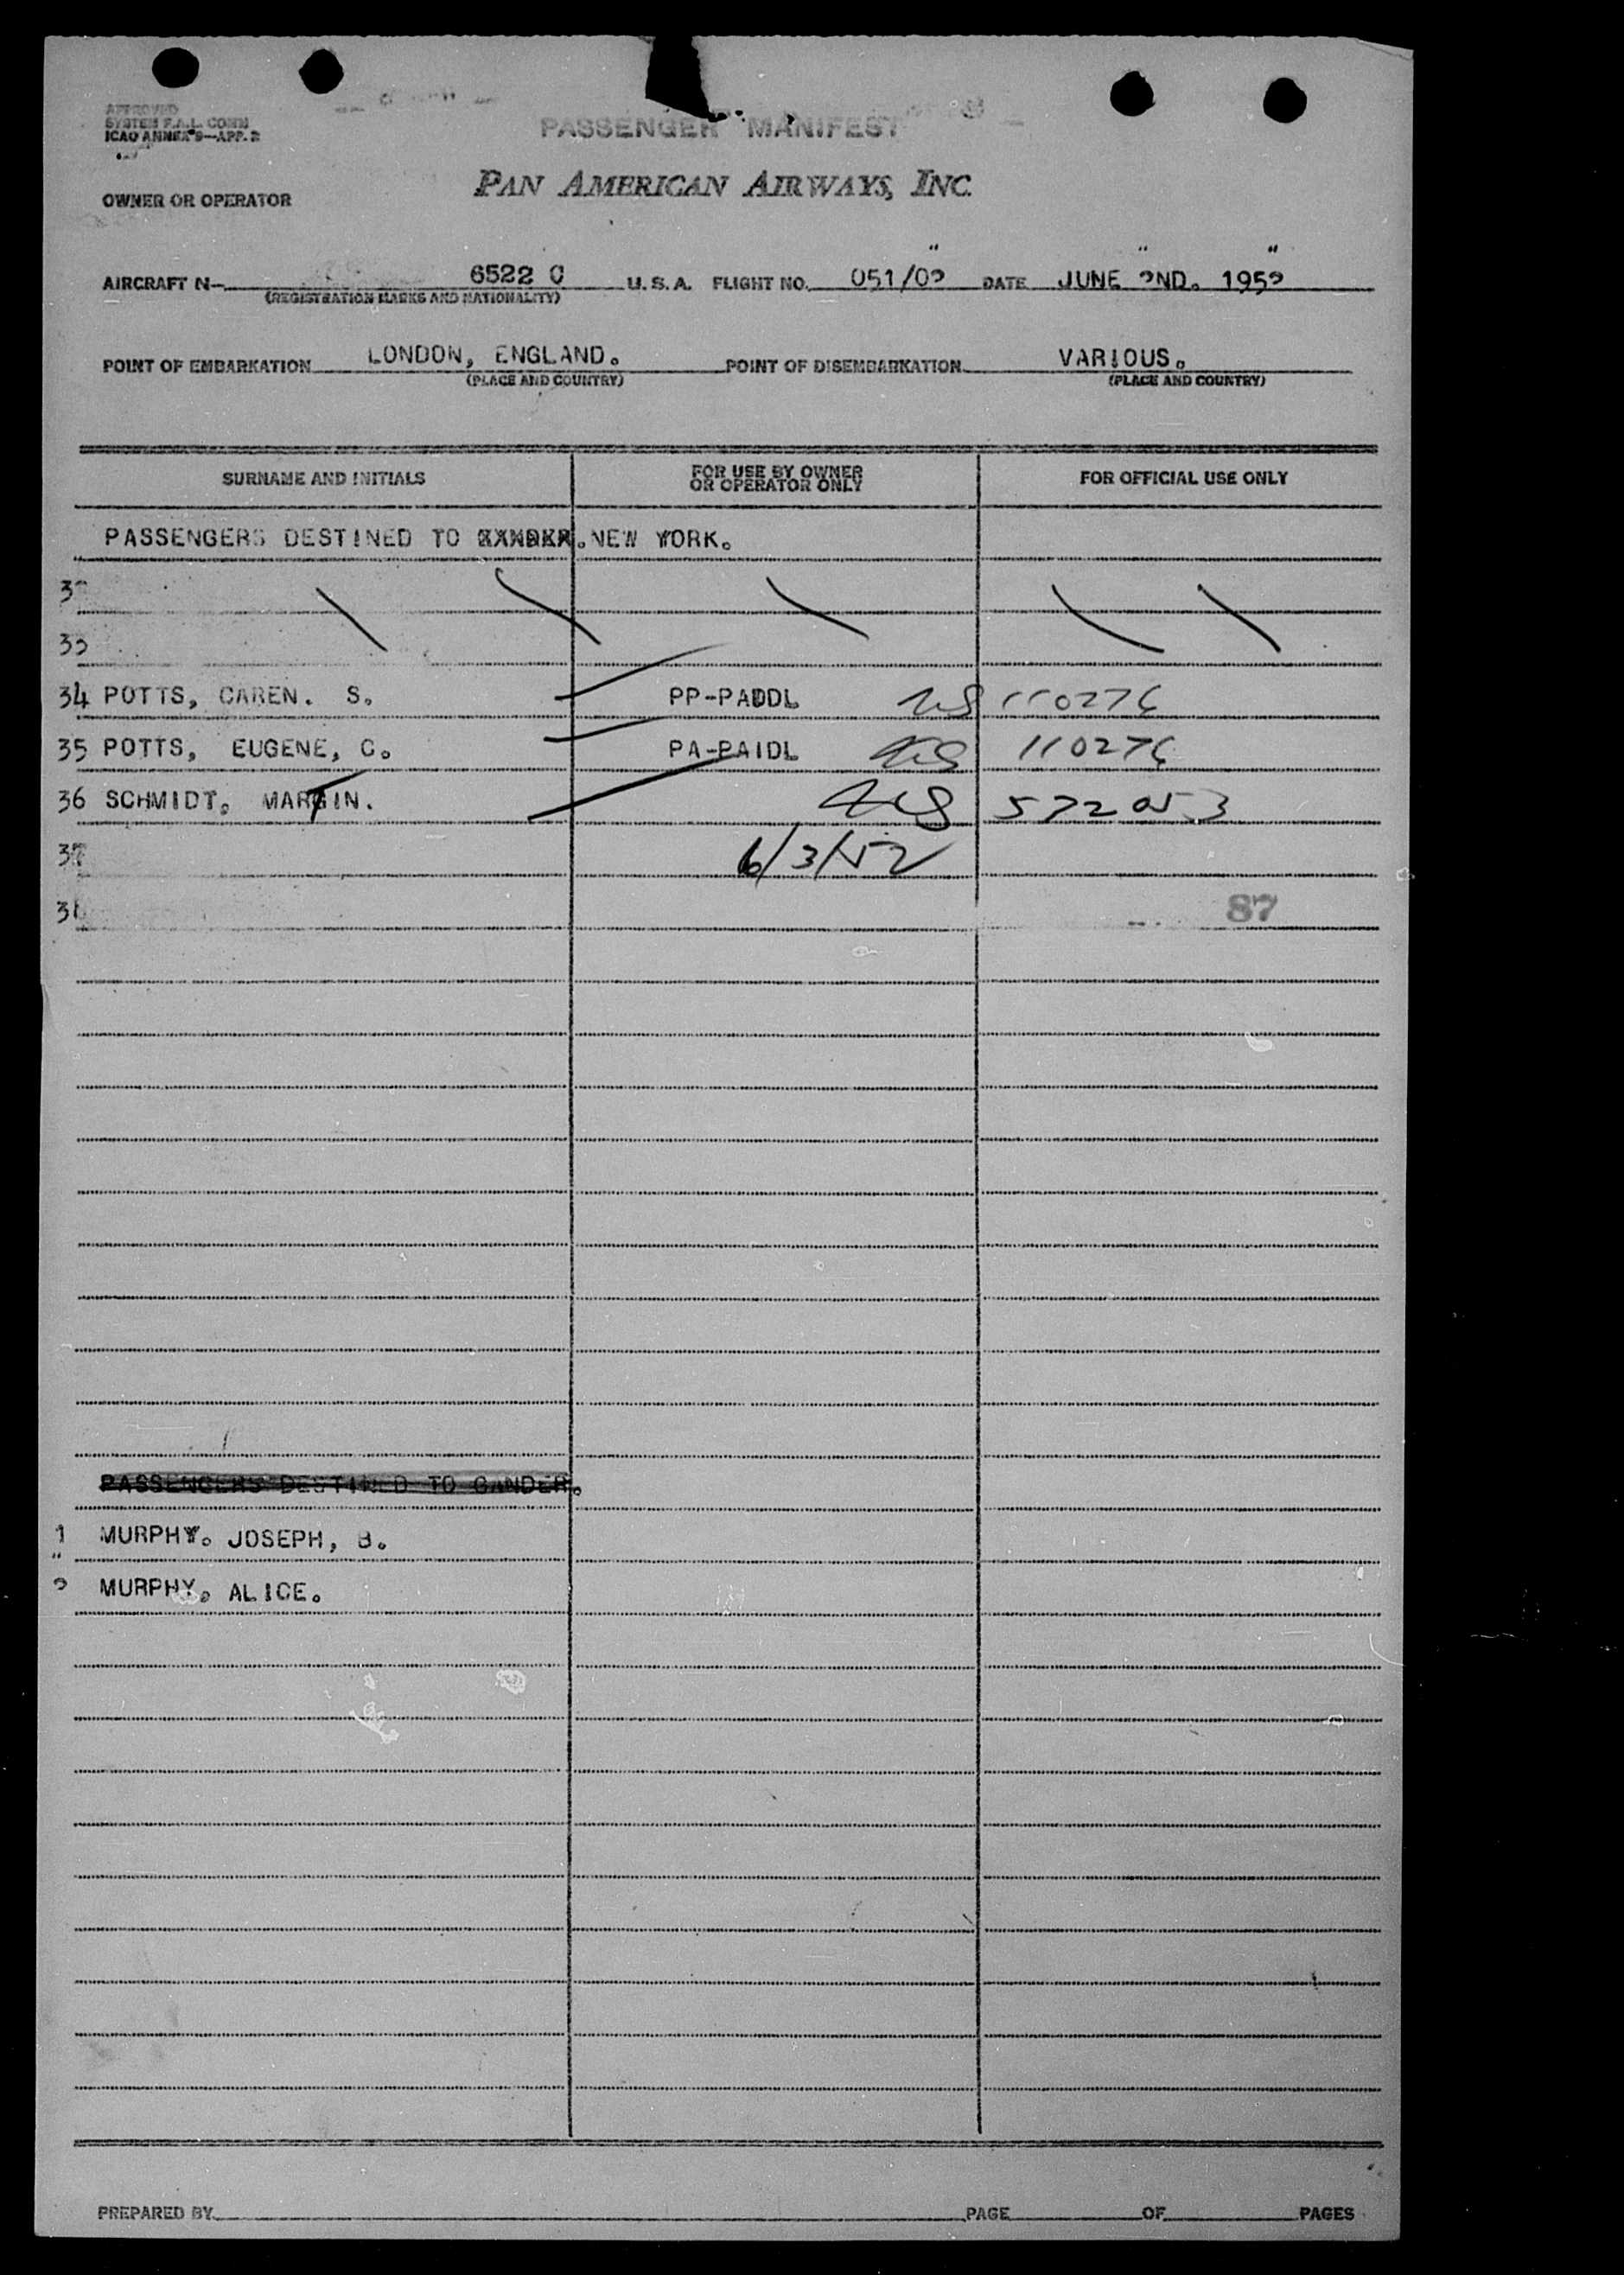 APPROVED
SYSTEM F.A.L. COMM
ICAO ANNEX 9—APP. 2
PASSENGER MANIFEST
OWNER OR OPERATOR PAN AMERICAN AIRWAYS, INC.
AIRCRAFT N- 6522 C U. S. A. FLIGHT NO. 051/02 DATE JUNE 2ND. 1952
(REGISTRATION MARKS AND NATIONALITY)
POINT OF EMBARKATION LONDON, ENGLAND. POINT OF DISEMBARKATION VARIOUS.
(PLACE AND COUNTRY) (PLACE AND COUNTRY)
SURNAME AND INITIALS FOR USE BY OWNER OR OPERATOR ONLY FOR OFFICIAL USE ONLY
PASSENGERS DESTINED TO NEW YORK.
32
33
34 POTTS, CAREN. S. PP-PADDL US 110276
35 POTTS, EUGENE, C. PA-PAIDL US 110276
36 SCHMIDT. MARTIN. US 572053
37 6/3/52
38 87
PASSENGERS DESTINED TO GANDER.
1 MURPHY. JOSEPH, B.
2 MURPHY. ALICE.
PREPARED BY PAGE OF PAGES